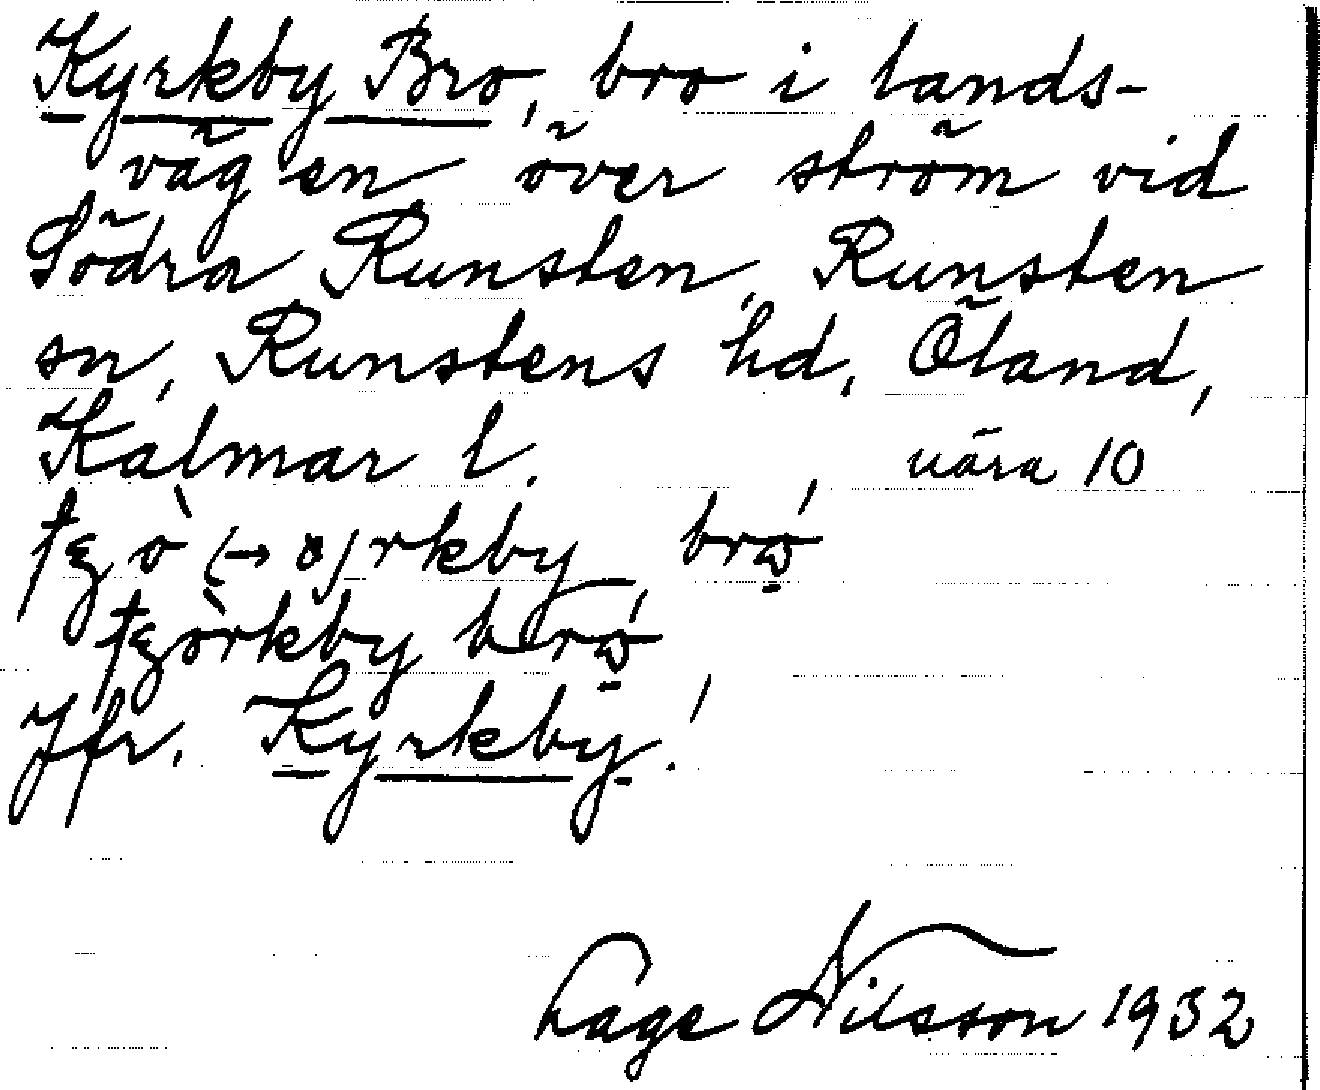 Kyrkby Bro, bro i lands-
vägen över ström vid
Södra Runsten, Runsten
sn, Runstens hd, Öland,
Kalmar l. nära 10
bró
Jfr. Kyrkby!
Lage Nilsson 1932